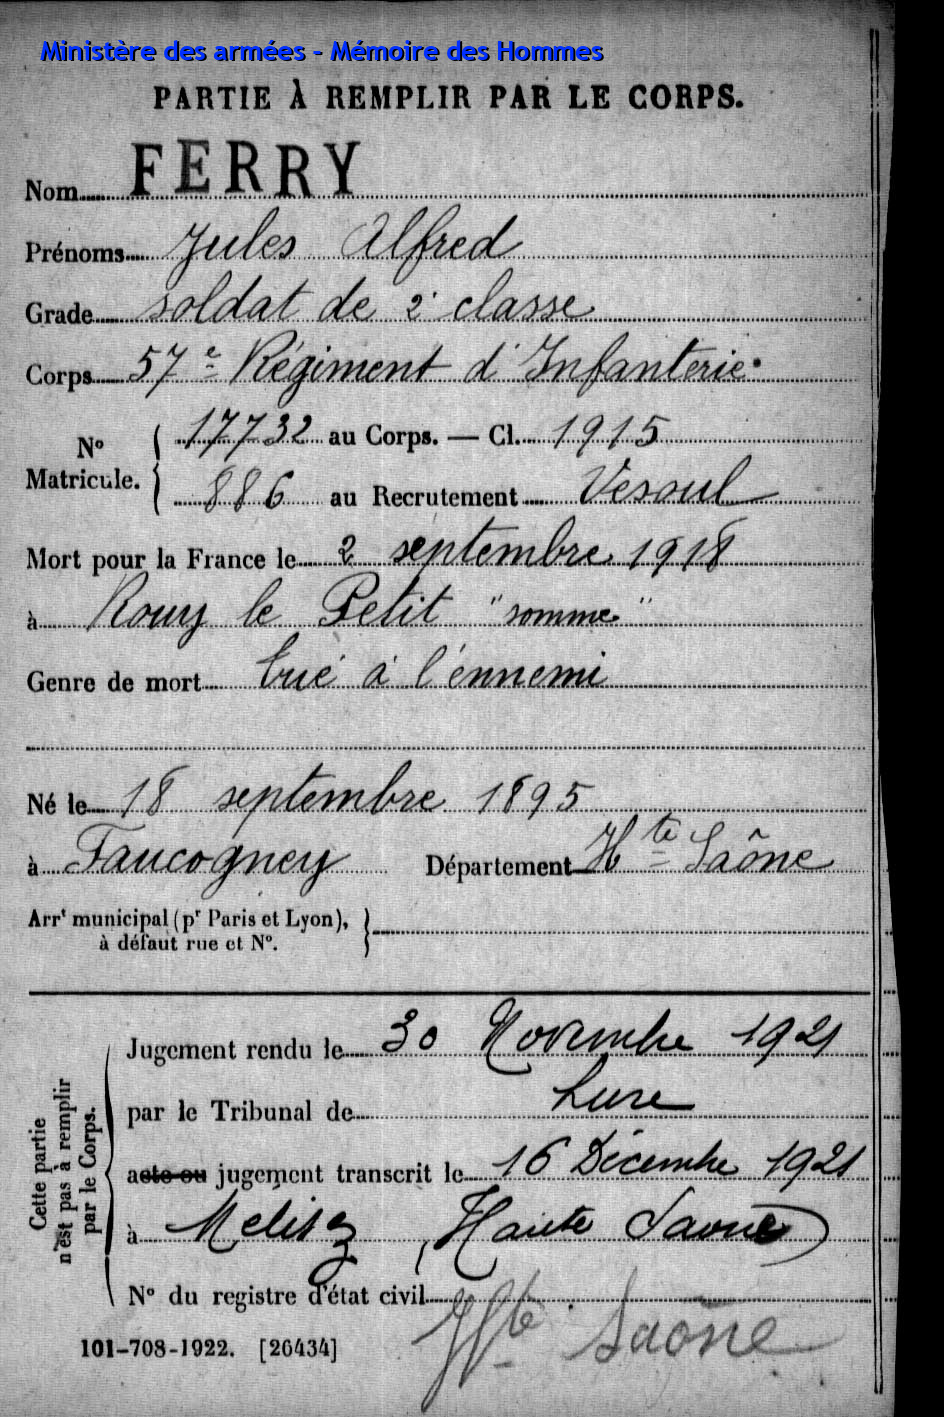 Ministère des armées - Mémoire des Hommes
PARTIE À REMPLIR PAR LE CORPS.
Nom FERRY
Prénoms Jules Alfred
Grade soldat de 2e classe
Corps 57e Régiment d'Infanterie
N° Matricule. { 17732 au Corps. — Cl. 1915
886 au Recrutement Vesoul
Mort pour la France le 2 septembre 1918
à Rouy le Petit "somme"
Genre de mort tué à l'énnemi
Né le 18 septembre 1895
à Faucogney Département Hte Saône
Arrt municipal (pr Paris et Lyon), }
à défaut rue et N°.
Cette partie n'est pas à remplir par le Corps.
Jugement rendu le 30 Novembre 1921
par le Tribunal de Lure
acte ou jugement transcrit le 16 Décembre 1921
à Melisey (Haute Saone)
N° du registre d'état civil
Hte Saône
101-708-1922. [26434]